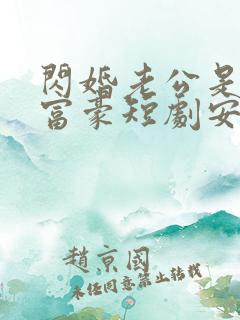 閃婚老公是
富豪短劇安
趙京國
未經同意禁止轉載